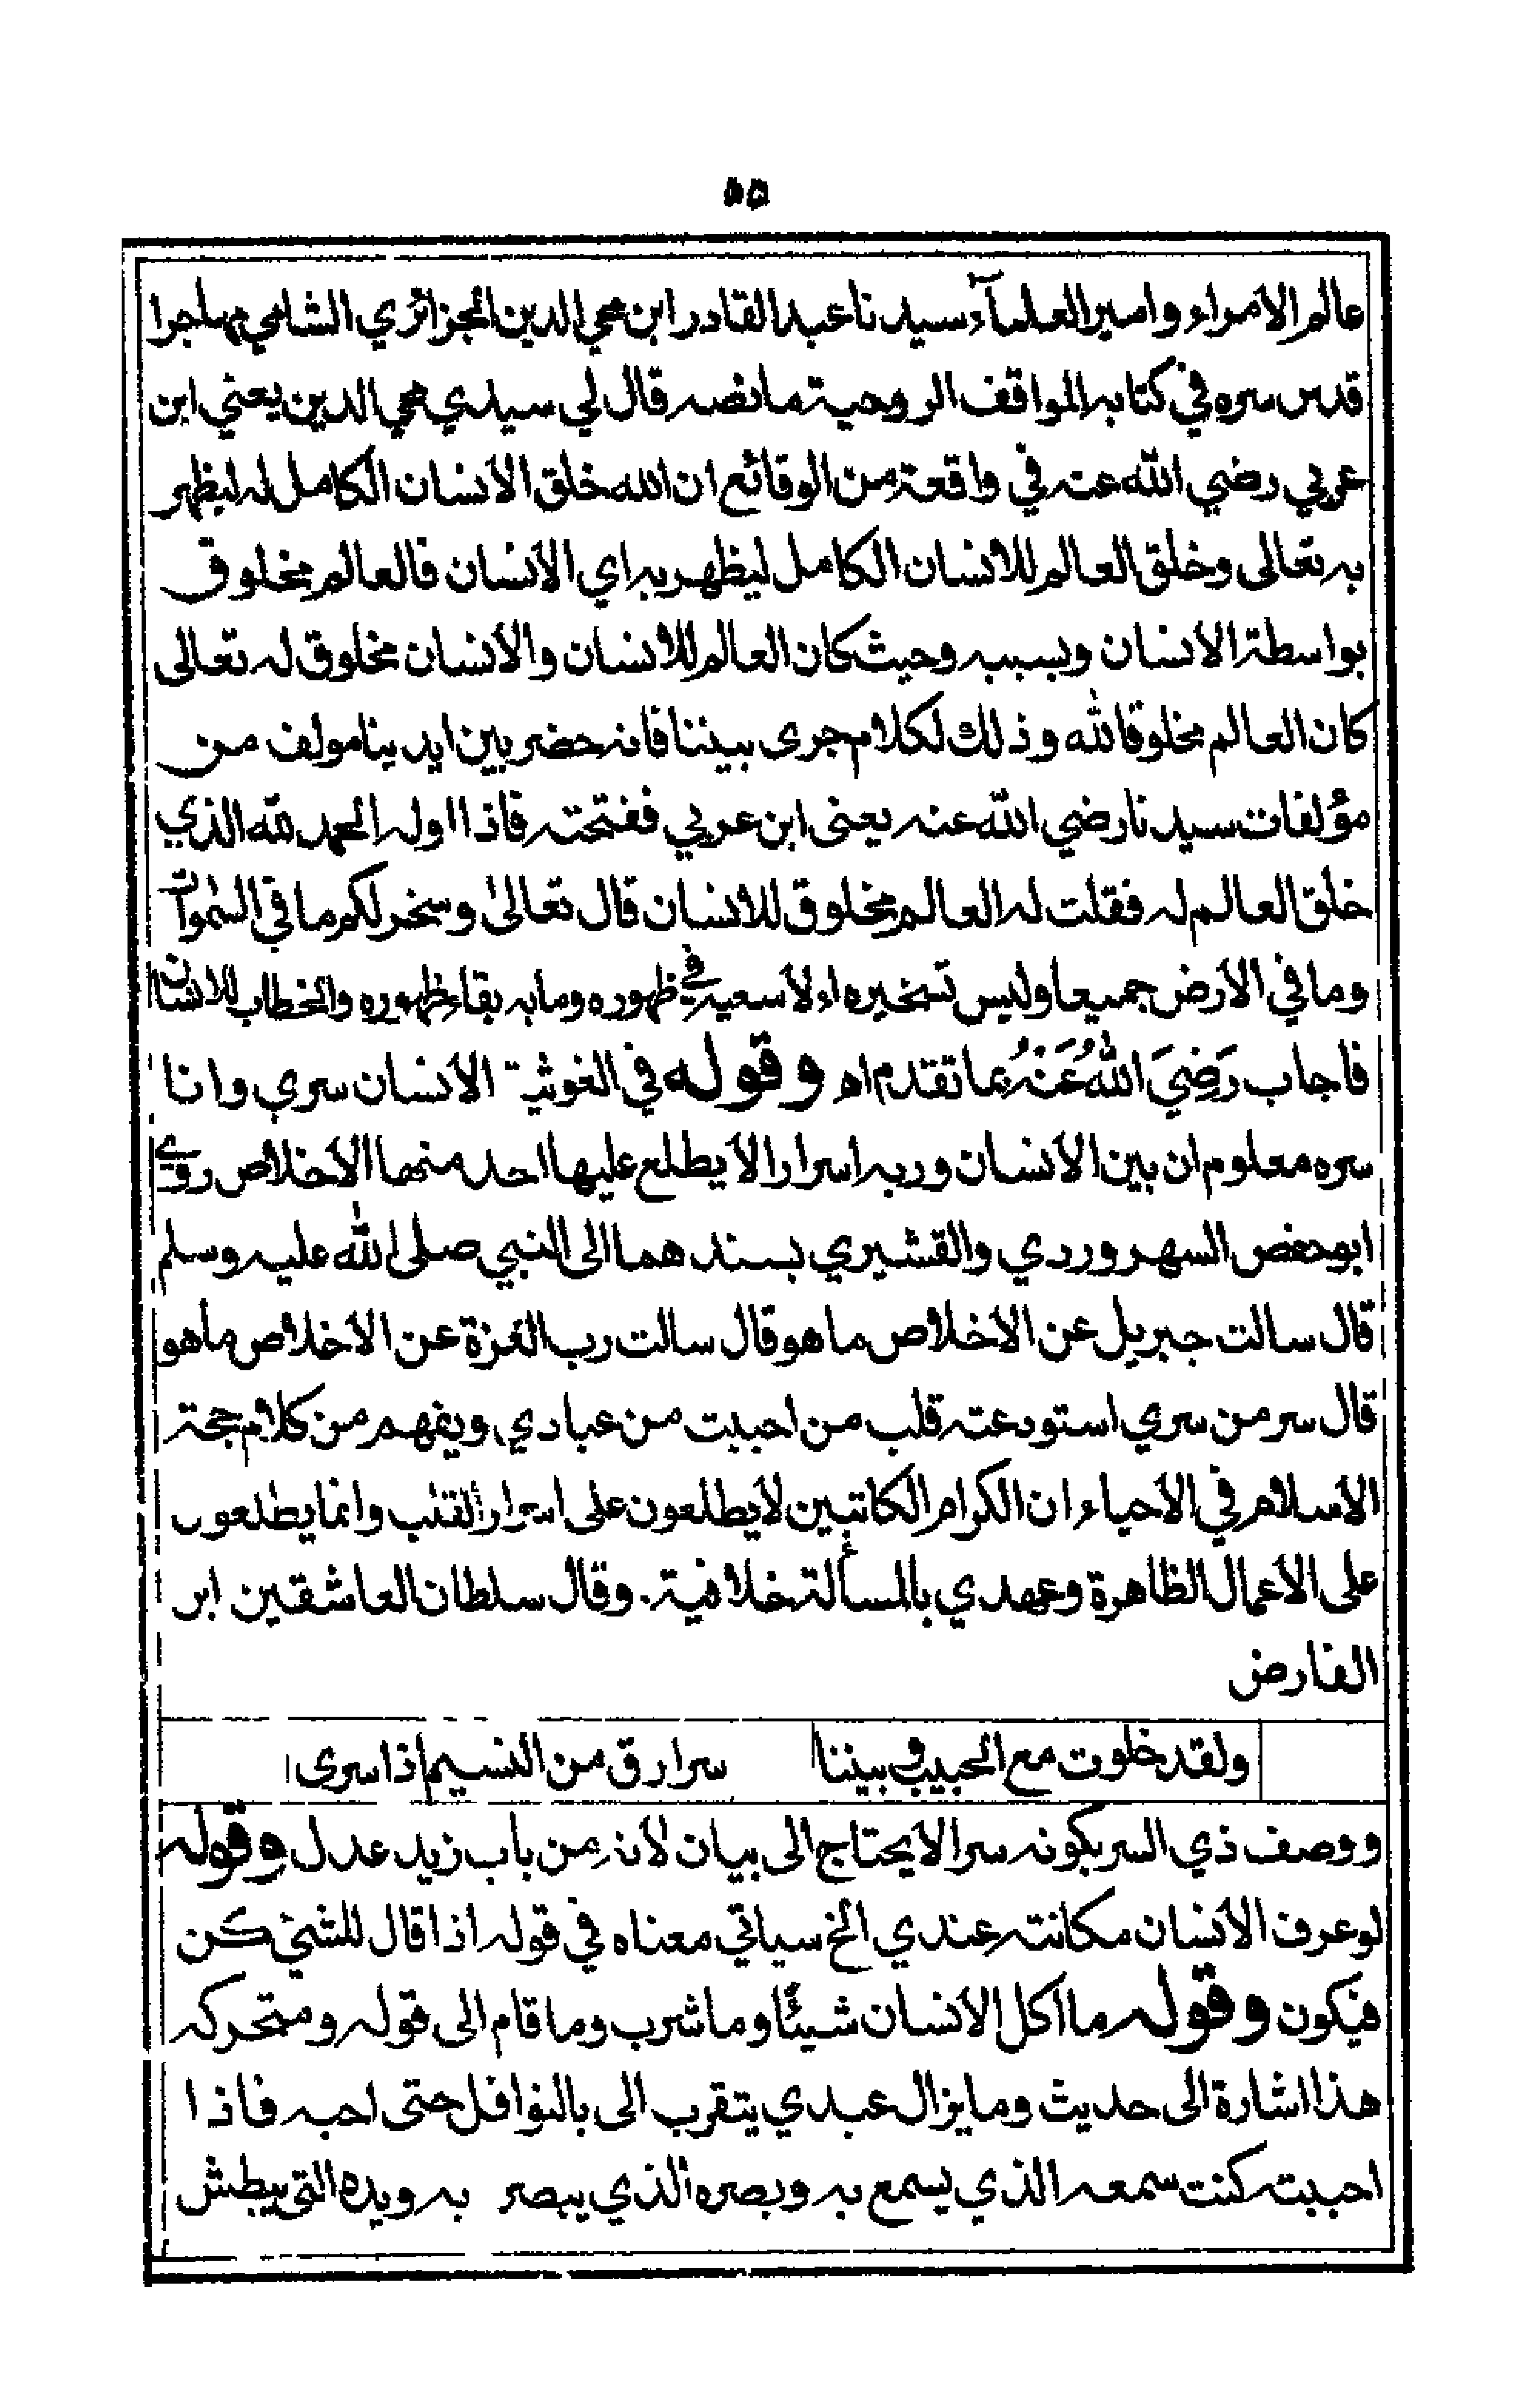 ٥٥
عالم الامراء وامير العلمآء سيدنا عبد القادر ابن محي الدين الجزائري الشامي مهاجرا
قدس سره في كتابه المواقف الروحية ما نصه قال لي سيدي محي الدين يعني ابن
عربي رضي الله عنه في واقعة من الوقائع ان الله خلق الانسان الكامل له ليظهر
به تعالى وخلق العالم للانسان الكامل ليظهر به اي الانسان فالعالم مخلوق
بواسطة الانسان وبسببه وحيث كان العالم للانسان والانسان مخلوق له تعالى
كان العالم مخلوقا لله وذلك لكلام جرى بيننا فانه حضر بين ايدينا مولف من
مؤلفات سيدنا رضي الله عنه يعنى ابن عربي ففتحته فاذا اوله الحمد لله الذي
خلق العالم له فقلت له العالم مخلوق للانسان قال تعالى وسخر لكم ما في السموات
وما في الارض جميعا وليس تسخيره الا سعيه في ظهوره وما به بقاء ظهوره والخطاب للانسان
فاجاب رَضِيَ اللهُ عَنْهُ بما تقدم اه وقوله في الغوثية الانسان سري وانا
سره معلوم ان بين الانسان وربه اسرارا لا يطلع عليها احد منها الاخلاص روي
ابو حفص السهروردي والقشيري بسندهما الى النبي صلى الله عليه وسلم
قال سالت جبريل عن الاخلاص ما هو قال سالت رب العزة عن الاخلاص ما هو
قال سر من سري استودعته قلب من احببت من عبادي ويفهم من كلام حجة
الاسلام في الاحياء ان الكرام الكاتبين لا يطلعون على اسرار القلب وانما يطلعون
على الاعمال الظاهرة وعهدي بالمسألة خلافية. وقال سلطان العاشقين ابن
الفارض
ولقد خلوت مع الحبيب وبيننا سر ارق من النسيم اذا سرى
ووصف ذي السر بكونه سرا لا يحتاج الى بيان لانه من باب زيد عدل وقوله
لو عرف الانسان مكانته عندي الخ سياتي معناه في قوله اذا قال للشئ كن
فيكون وقوله ما اكل الانسان شيئًا وما شرب وما قام الى قوله ومتحركه
هذا اشارة الى حديث وما يزال عبدي يتقرب الى بالنوافل حتى احبه فاذا
احببته كنت سمعه الذي يسمع به وبصره الذي يبصر به ويده التي يبطش